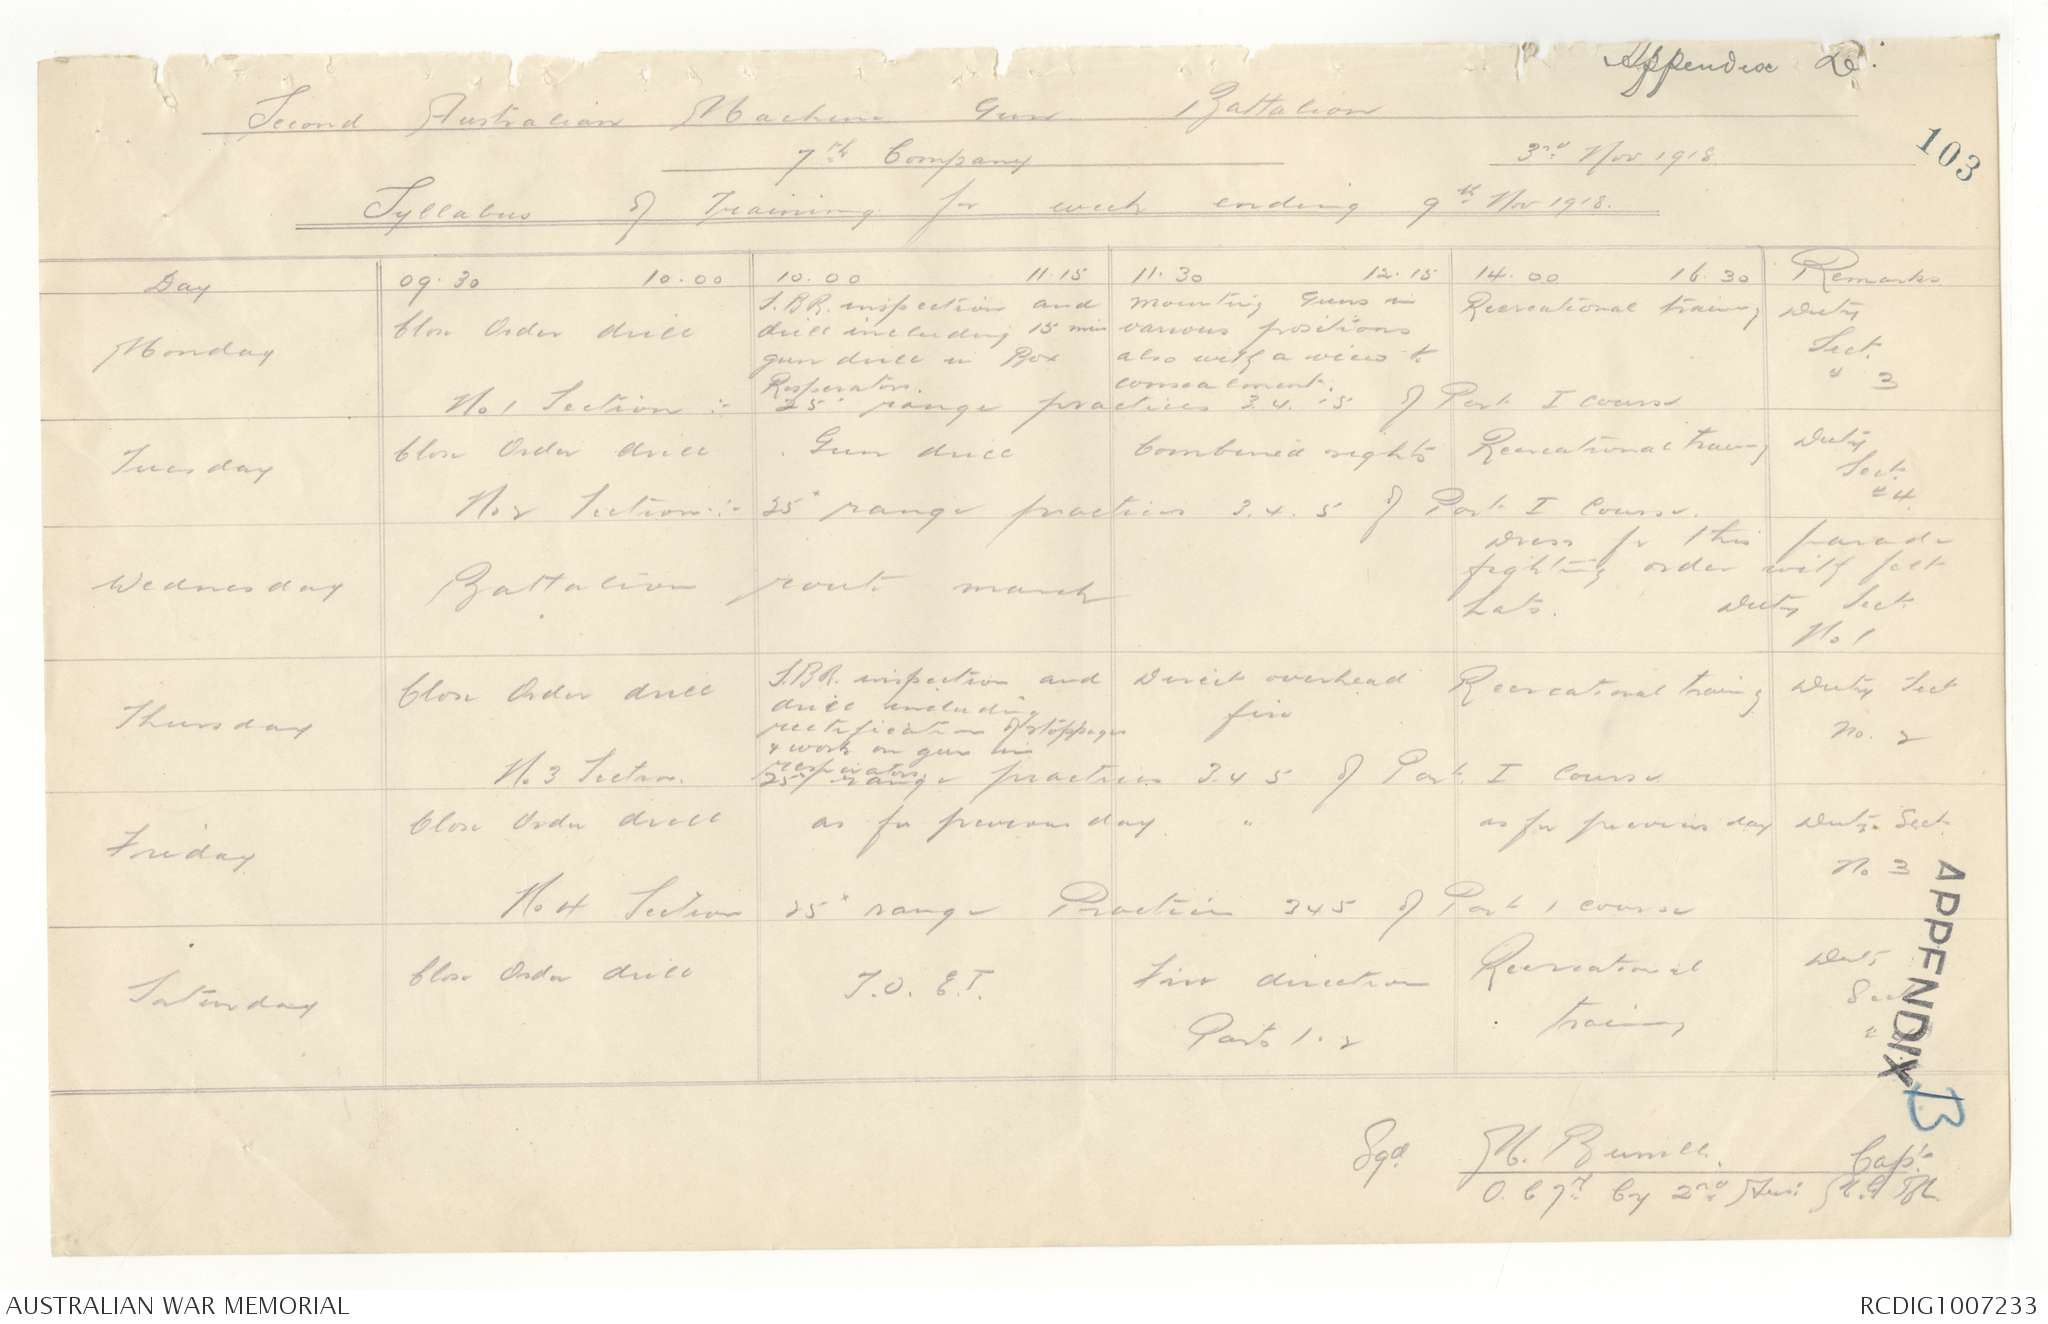 Appendix D.
103
Second Australian Machine Gun Battalion
7th Company 3rd Nov 1918
Syllabus of Training for week ending 9th Nov 1918.
Day 09.30 10.00 10.00 11.15 11.30 12.15 14.00 16.30 Remarks
Monday
Close Order drill
S.B.R. inspection and
drill including 15 min
gun drill in Box
Respirators.
Mounting Guns in
various positions
also with a view to
concealment.
Recreational training
Duty
Sect.
" 3
No 1 Section :- 25x range practices 3.4.5 of Part I course
Tuesday
Close Order drill
Gun drill
Combined sights
Recreational training
Duty
Sect.
" 4.
No 2 Section :- 25x range practices 3.4.5 of Part I Course.
Wednesday
Battalion route march
Dress for this parade
fighting order with felt
hats. Duty Sect.
No 1
Thursday
Close Order drill
S.B.R. inspection and
drill including
rectification of stoppages
& work on gun in
respirators.
Direct overhead
fire
Recreational training
Duty Sect
No. 2
No 3 Section. 25x range practices 3.4 5 of Part I Course
Friday
Close Order drill
as for previous day
"
as for previous day
Duty Sect.
No 3
No 4 Section 25x range Practices 345 of Part 1 course
Saturday
Close Order drill
T.O.E.T.
Fire direction
Parts 1.2
Recreational
training
Duty
Sect
"
APPENDIX B
Sgd. Capt.
O.C 7th Cy 2nd Aus: M.G Bn.
AUSTRALIAN WAR MEMORIAL
RCDIG1007233